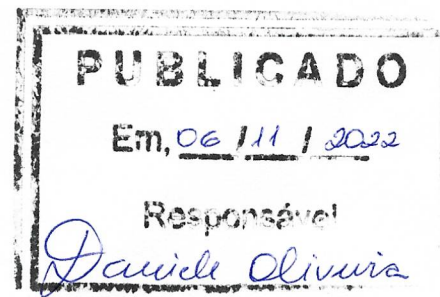 PUBLICADO
Em, 06 / 11 / 2022
Responsável
Daniele Oliveira